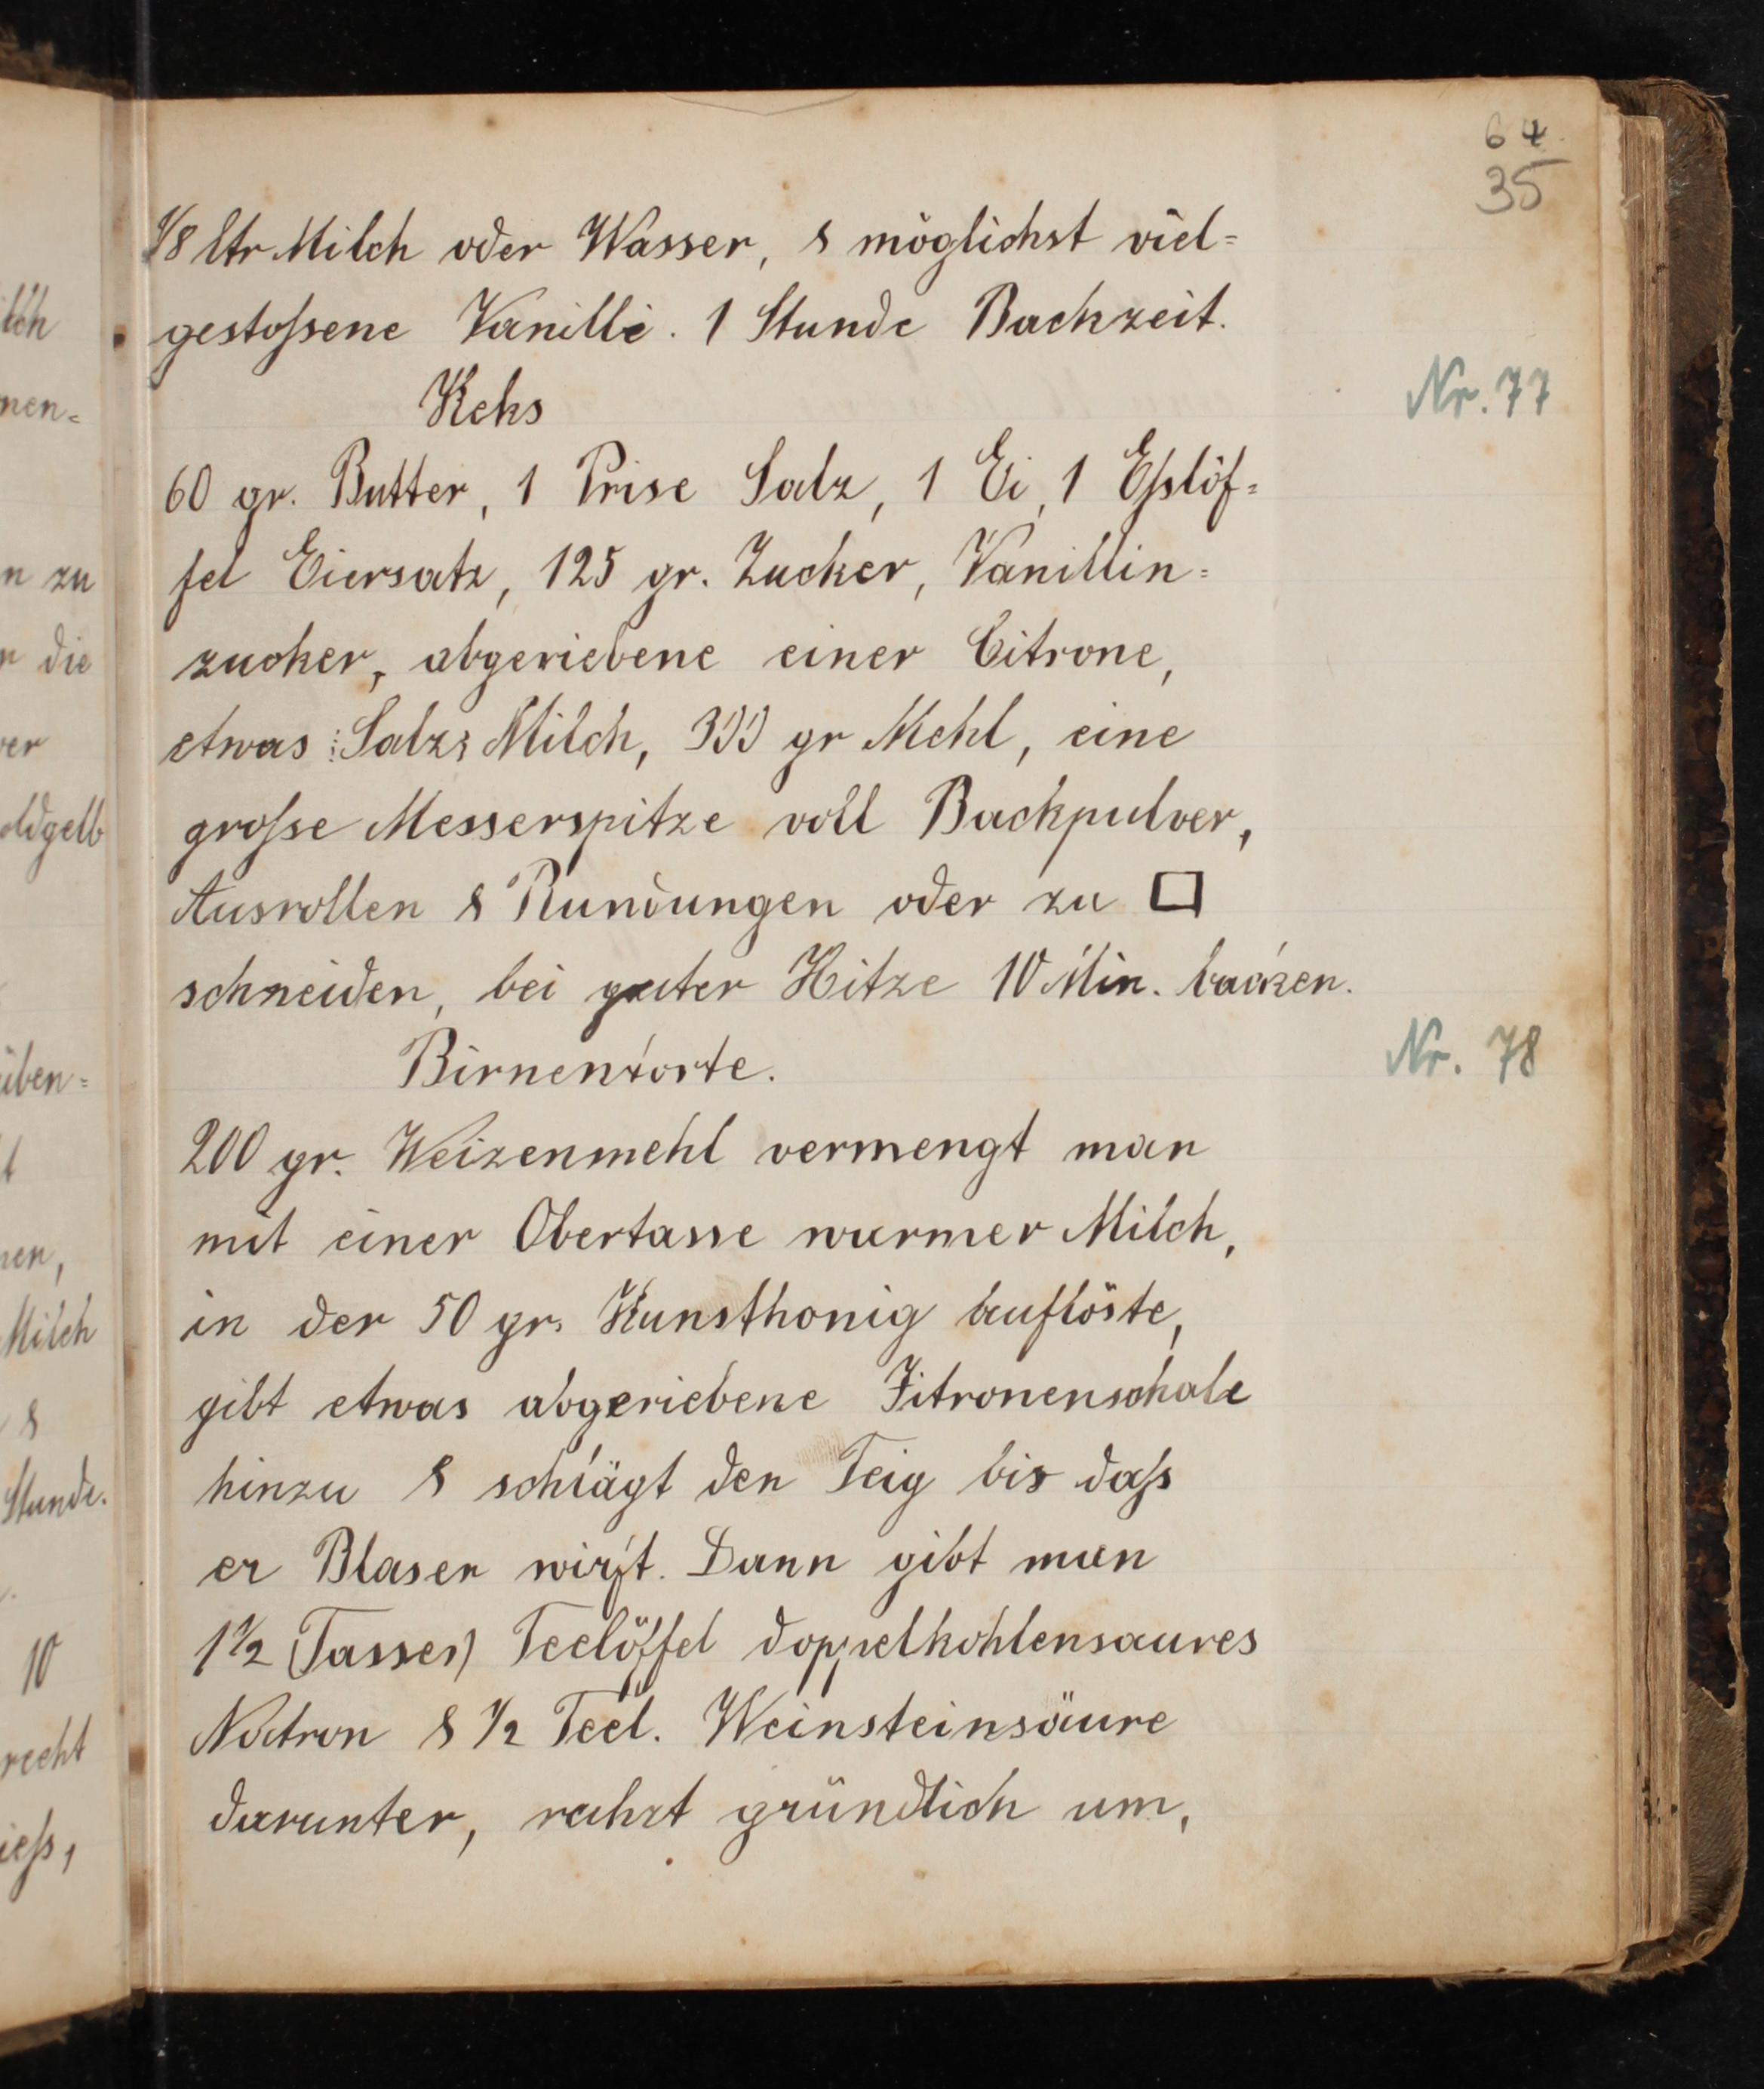 64
35
1/8 ltr Milch oder Wasser, & möglichst viel=
gestoßene Vanille. 1 Stunde Backzeit.
Keks
Nr. 77
60 gr. Butter, 1 Prise Salz, 1 Ei, 1 Eßlöf=
fel Eiersatz, 125 gr. Zucker, Vanillin=
zucker, abgeriebene einer Citrone,
etwas Salz, Milch, 300 gr Mehl, eine
große Messerspitze voll Backpulver,
Ausrollen & Rundungen oder zu □
schneiden, bei guter Hitze 10 Min. backen.
Birnentorte.
Nr. 78
200 gr. Weizenmehl vermengt man
mit einer Obertasse warmer Milch,
in der 50 gr. Kunsthonig auflöste,
gibt etwas abgeriebene Zitronenschale
hinzu & schlägt den Teig bis daß
er Blasen wirft. Dann gibt man
1 1/2 (Tassen) Teelöffel doppelkohlensaures
Natron & 1/2 Teel. Weinsteinsäure
darunter, rührt gründlich um,
nen=
n zu
die
ver
oldgelb
üben=
Milch
&
Stunde.
10
recht